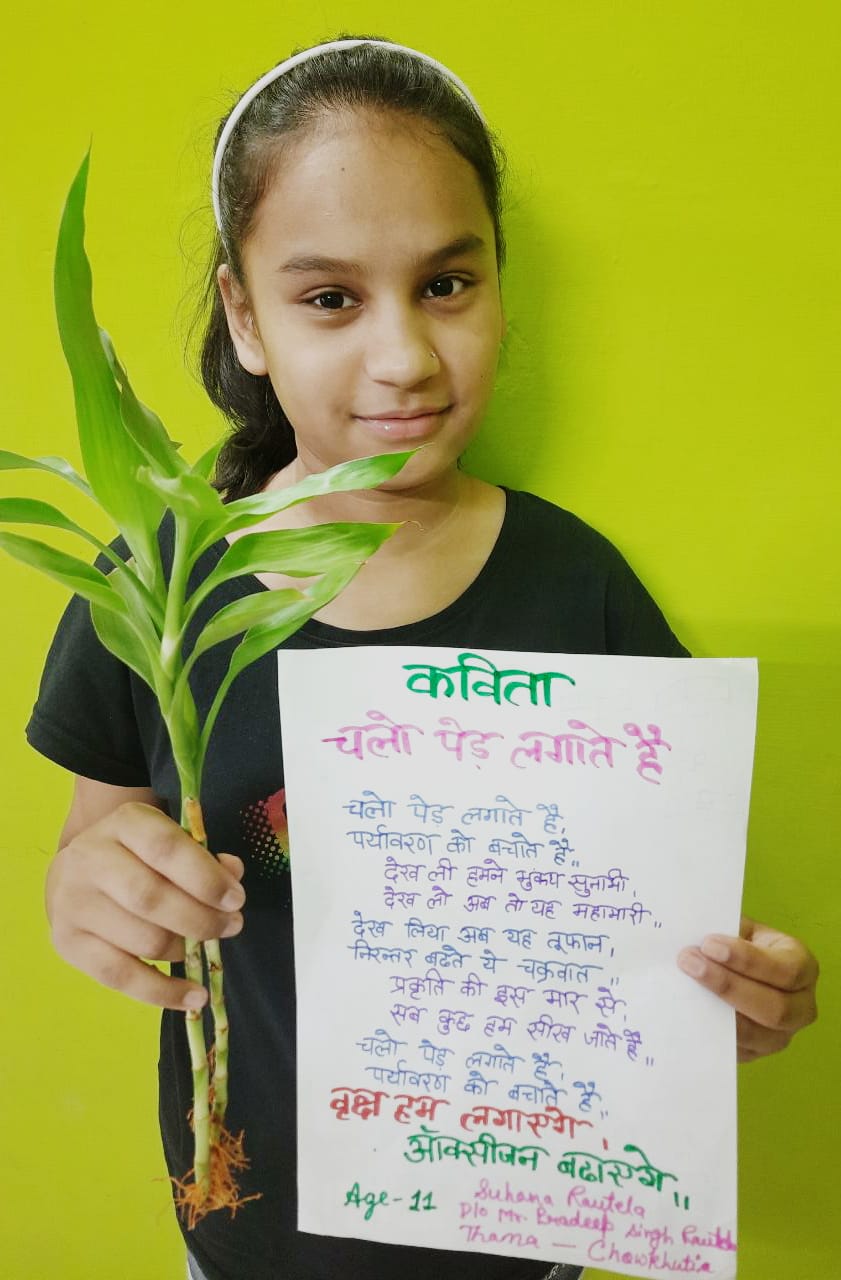 कविता
चलो पेड़ लगाते है
चलो पेड़ लगाते है,
पर्यावरण को बचाते है,,
देख ली हमने भुकंप सुनामी,
देख लो अब तो यह महामारी,,
देख लिया अब यह तूफान,
निरन्तर बढते ये चक्रवात,,
प्रकृति की इस मार से,
सब कुछ हम सीख जाते है,,
चलो पेड़ लगाते है,
पर्यावरण को बचाते है,,
वृक्ष हम लगाएगे,
ऑक्सीजन बढाएगे,,
Age-11
Suhana Rautela
D/o Mr. Pradeep Singh Rautela
Thana — Chowkhutia